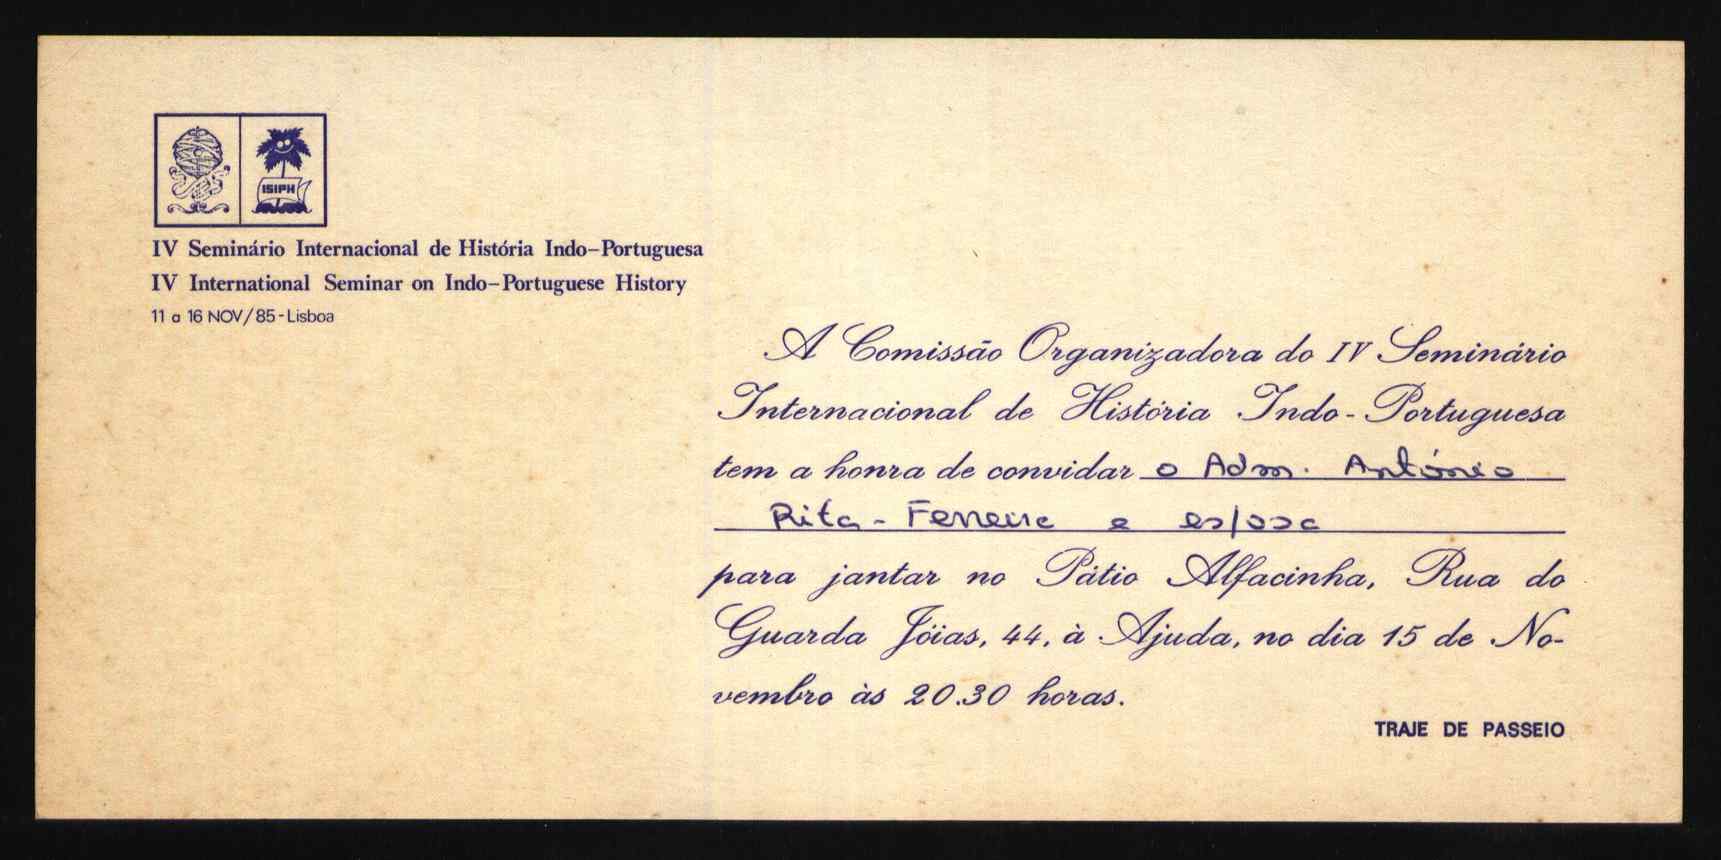 ISIPH
IV Seminário Internacional de História Indo-Portuguesa
IV International Seminar on Indo-Portuguese History
11 a 16 NOV/85-Lisboa
A Comissão Organizadora do IV Seminário
Internacional de História Indo-Portuguesa
tem a honra de convidar o Adm. António
Rita-Ferreira e esposa
para jantar no Pátio Alfacinha, Rua do
Guarda Jóias, 44, à Ajuda, no dia 15 de No-
vembro às 20.30 horas.
TRAJE DE PASSEIO